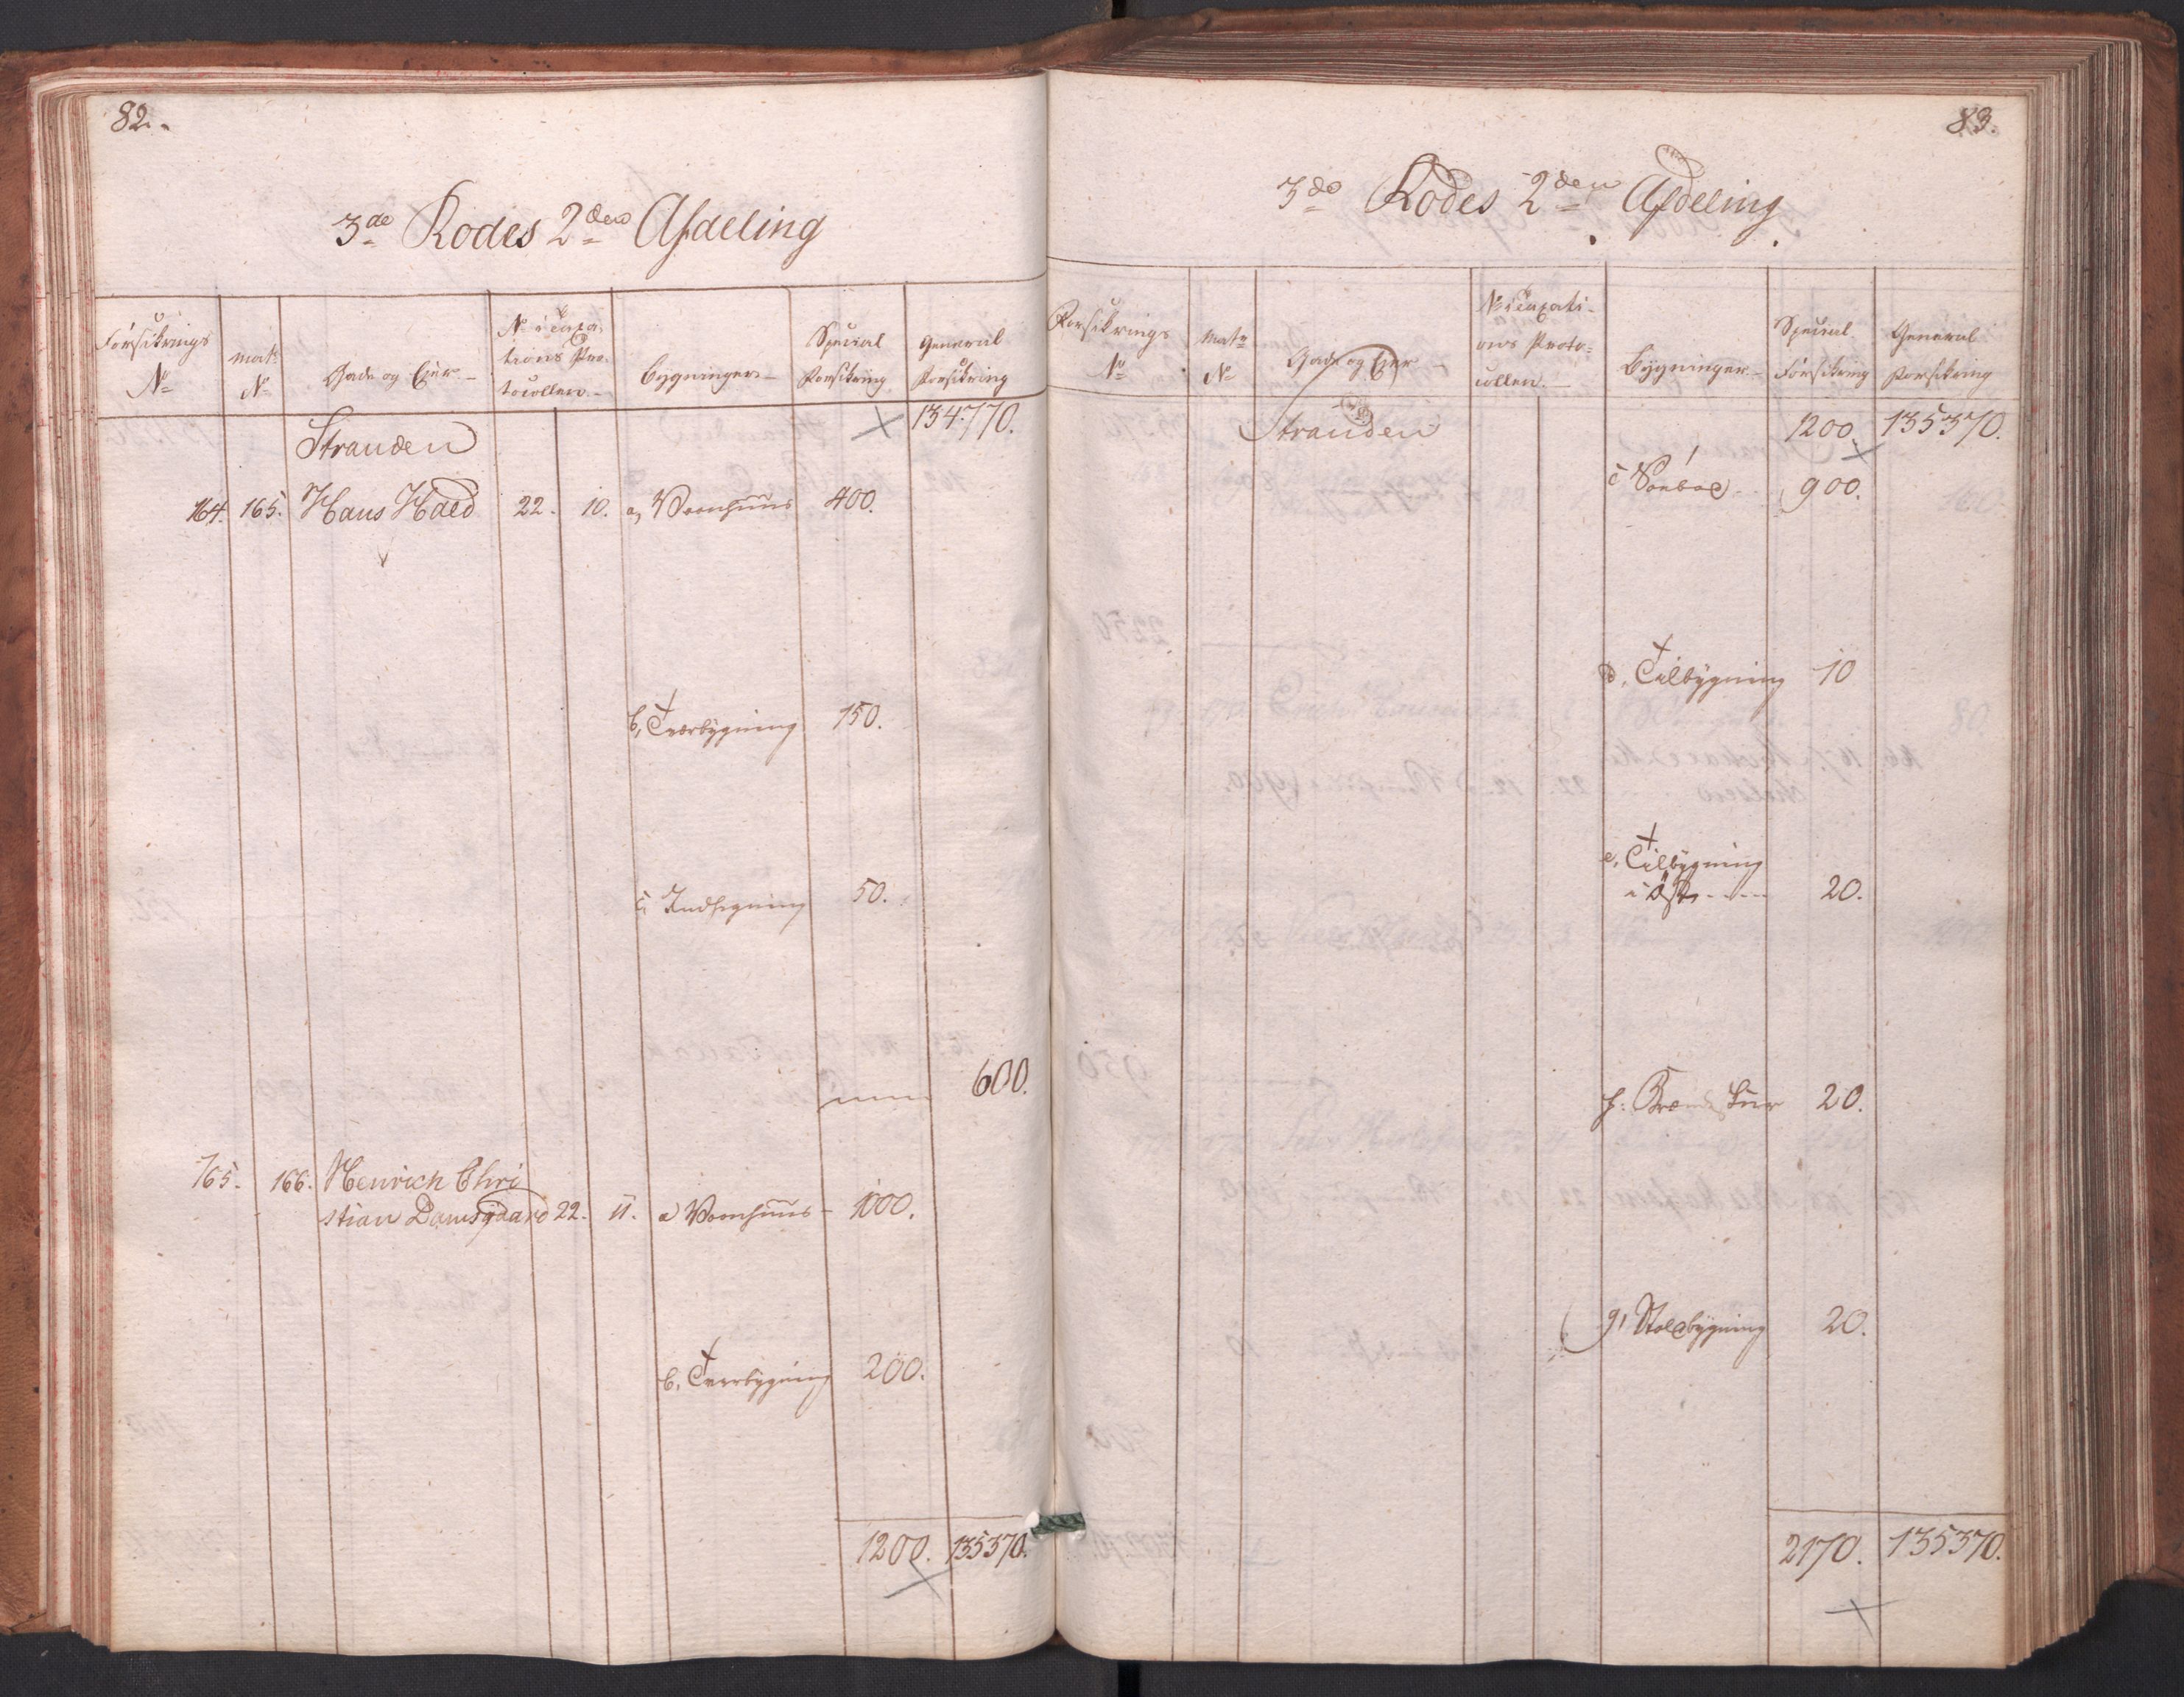 82.
3de Rodes 2den Afdeling
Forsikrings No
Mat: No
Gade og Eier
No i Taxa-
tions Pro-
tocollen
Bygninger
Special Forsikring
General Forsikring
134770.
Stranden
164. 165. Hans 22. 10. a, Vaanhuus 400.
b, Tverbygning 150.
c, Indhegning 50.
600.
165. 166. Henrich Chri
stian Damsgaard 22. 11. a Vaanhuus 1000.
b, Tverbygning 200.
1200. 135370.
83.
3de Rodes 2den Afdeling
Forsikrings No
Matr No
Gade og Eier
No i Taxati-
ons Proto-
collen
Bygninger
Special Forsikring
General Forsikring
Stranden 1200. 135370.
c Søeboe 900.
d, Tilbygning 10
e, Tilbygning
i Øst 20.
f: Skur 20.
g, Bygning 20.
2170. 135370.